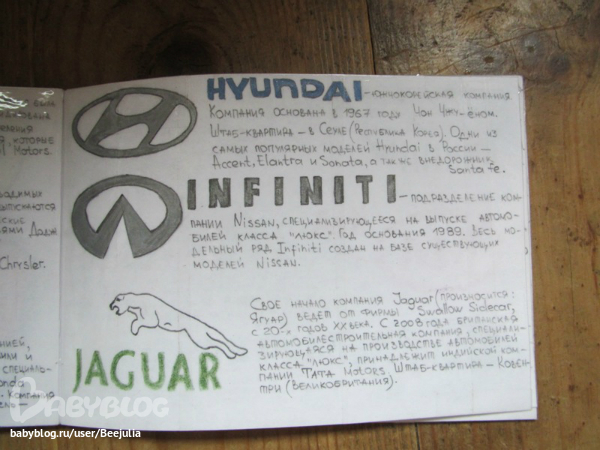 была
которые
l Motors.
водимых
выпускаются
Додж
Chrysler.
нией,
специаль-
onda
Компания
HYUNDAI – южнокорейская компания
Компания основана в 1967 году Чон Чжу-ёном.
Штаб-квартира – в Сеуле (Республика Корея). Одни из
самых популярных моделей Hyundai в России –
Accent, Elantra и Sonata, а также внедорожник
Santa fe.
INFINITI – подразделение ком-
пании Nissan, специализирующееся на выпуске автомо-
билей класса "люкс". Год основания 1989. Весь мо-
дельный ряд Infiniti создан на базе существующих
моделей Nissan.
Свое начало компания Jaguar (произносится:
Ягуар) ведёт от фирмы Swallow Sidecar,
с 20-х годов XX века. С 2008 года британская
автомобилестроительная компания, специали-
зирующаяся на производстве автомобилей
класса "люкс", принадлежит индийской ком-
пании Tata Motors. Штаб-квартира – Ковен-
три (Великобритания).
JAGUAR
BABYBLOG
babyblog.ru/user/Beejulia